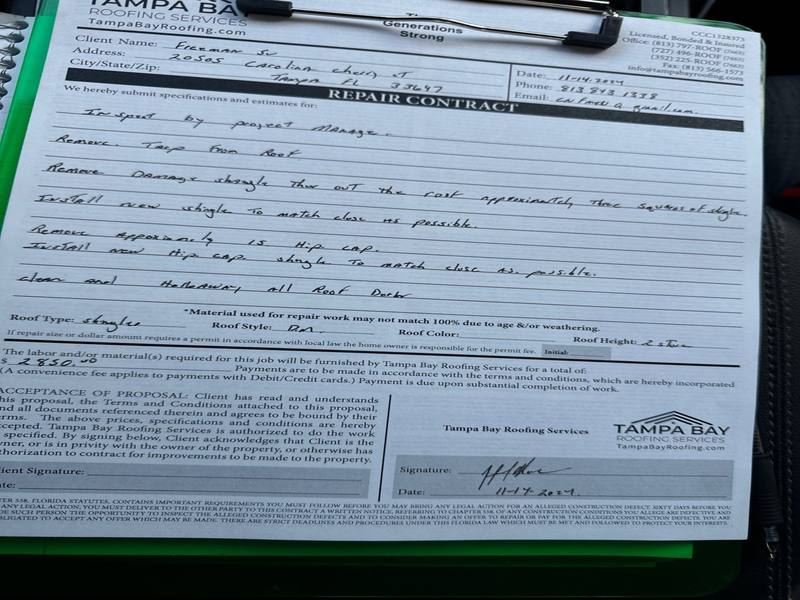 TAMPA BAY
ROOFING SERVICES
TampaBayRoofing.com
Generations
Strong
CCC1328373
Licensed, Bonded & Insured
Office: (813) 797-ROOF (7663)
(727) 496-ROOF (7663)
(352) 225-ROOF (7663)
Fax: (813) 566-1573
info@tampabayroofing.com
Client Name: Freeman Su
Address: 20505 Carolina Cherry CT
City/State/Zip: Tampa FL 33647
Date: 11-14-2024
Phone: 813 843 1338
Email:
REPAIR CONTRACT
We hereby submit specifications and estimates for:
Inspect by project manage.
Remove Tarp From Roof
Remove Damage shingle thur out the roof approximately three squares of shingle.
Install new shingle To match close as possible.
Remove Approximately 15 Hip cap.
Install new Hip cap shingle To match close as possible.
clean and Haul away all Roof
*Material used for repair work may not match 100% due to age &/or weathering.
Roof Type: shingles Roof Style: Roof Color: Roof Height:
If repair size or dollar amount requires a permit in accordance with local law the home owner is responsible for the permit fee. Initial:
The labor and/or material(s) required for this job will be furnished by Tampa Bay Roofing Services for a total of:
$ 2850.00 Payments are to be made in accordance with the terms and conditions, which are hereby incorporated
(A convenience fee applies to payments with Debit/Credit cards.) Payment is due upon substantial completion of work.
ACCEPTANCE OF PROPOSAL: Client has read and understands
this proposal, the Terms and Conditions attached to this proposal,
and all documents referenced therein and agrees to be bound by their
terms. The above prices, specifications and conditions are hereby
accepted. Tampa Bay Roofing Services is authorized to do the work
specified. By signing below, Client acknowledges that Client is the
owner, or is in privity with the owner of the property, or otherwise has
authorization to contract for improvements to be made to the property.
Client Signature:
Date:
Tampa Bay Roofing Services
TAMPA BAY
ROOFING SERVICES
TampaBayRoofing.com
Signature:
Date: 11-14-2024
558. FLORIDA STATUTES, CONTAINS IMPORTANT REQUIREMENTS YOU MUST FOLLOW BEFORE YOU MAY BRING ANY LEGAL ACTION FOR AN ALLEGED CONSTRUCTION DEFECT. SIXTY DAYS BEFORE YOU
ANY LEGAL ACTION, YOU MUST DELIVER TO THE OTHER PARTY TO THIS CONTRACT A WRITTEN NOTICE, REFERRING TO CHAPTER 558 OF ANY CONSTRUCTION CONDITIONS YOU ALLEGE ARE DEFECTIVE AND
SUCH PERSON THE OPPORTUNITY TO INSPECT THE ALLEGED CONSTRUCTION DEFECTS AND TO CONSIDER MAKING AN OFFER TO REPAIR OR PAY FOR THE ALLEGED CONSTRUCTION DEFECTS. YOU ARE
OBLIGATED TO ACCEPT ANY OFFER WHICH MAY BE MADE. THERE ARE STRICT DEADLINES AND PROCEDURES UNDER THIS FLORIDA LAW WHICH MUST BE MET AND FOLLOWED TO PROTECT YOUR INTERESTS.